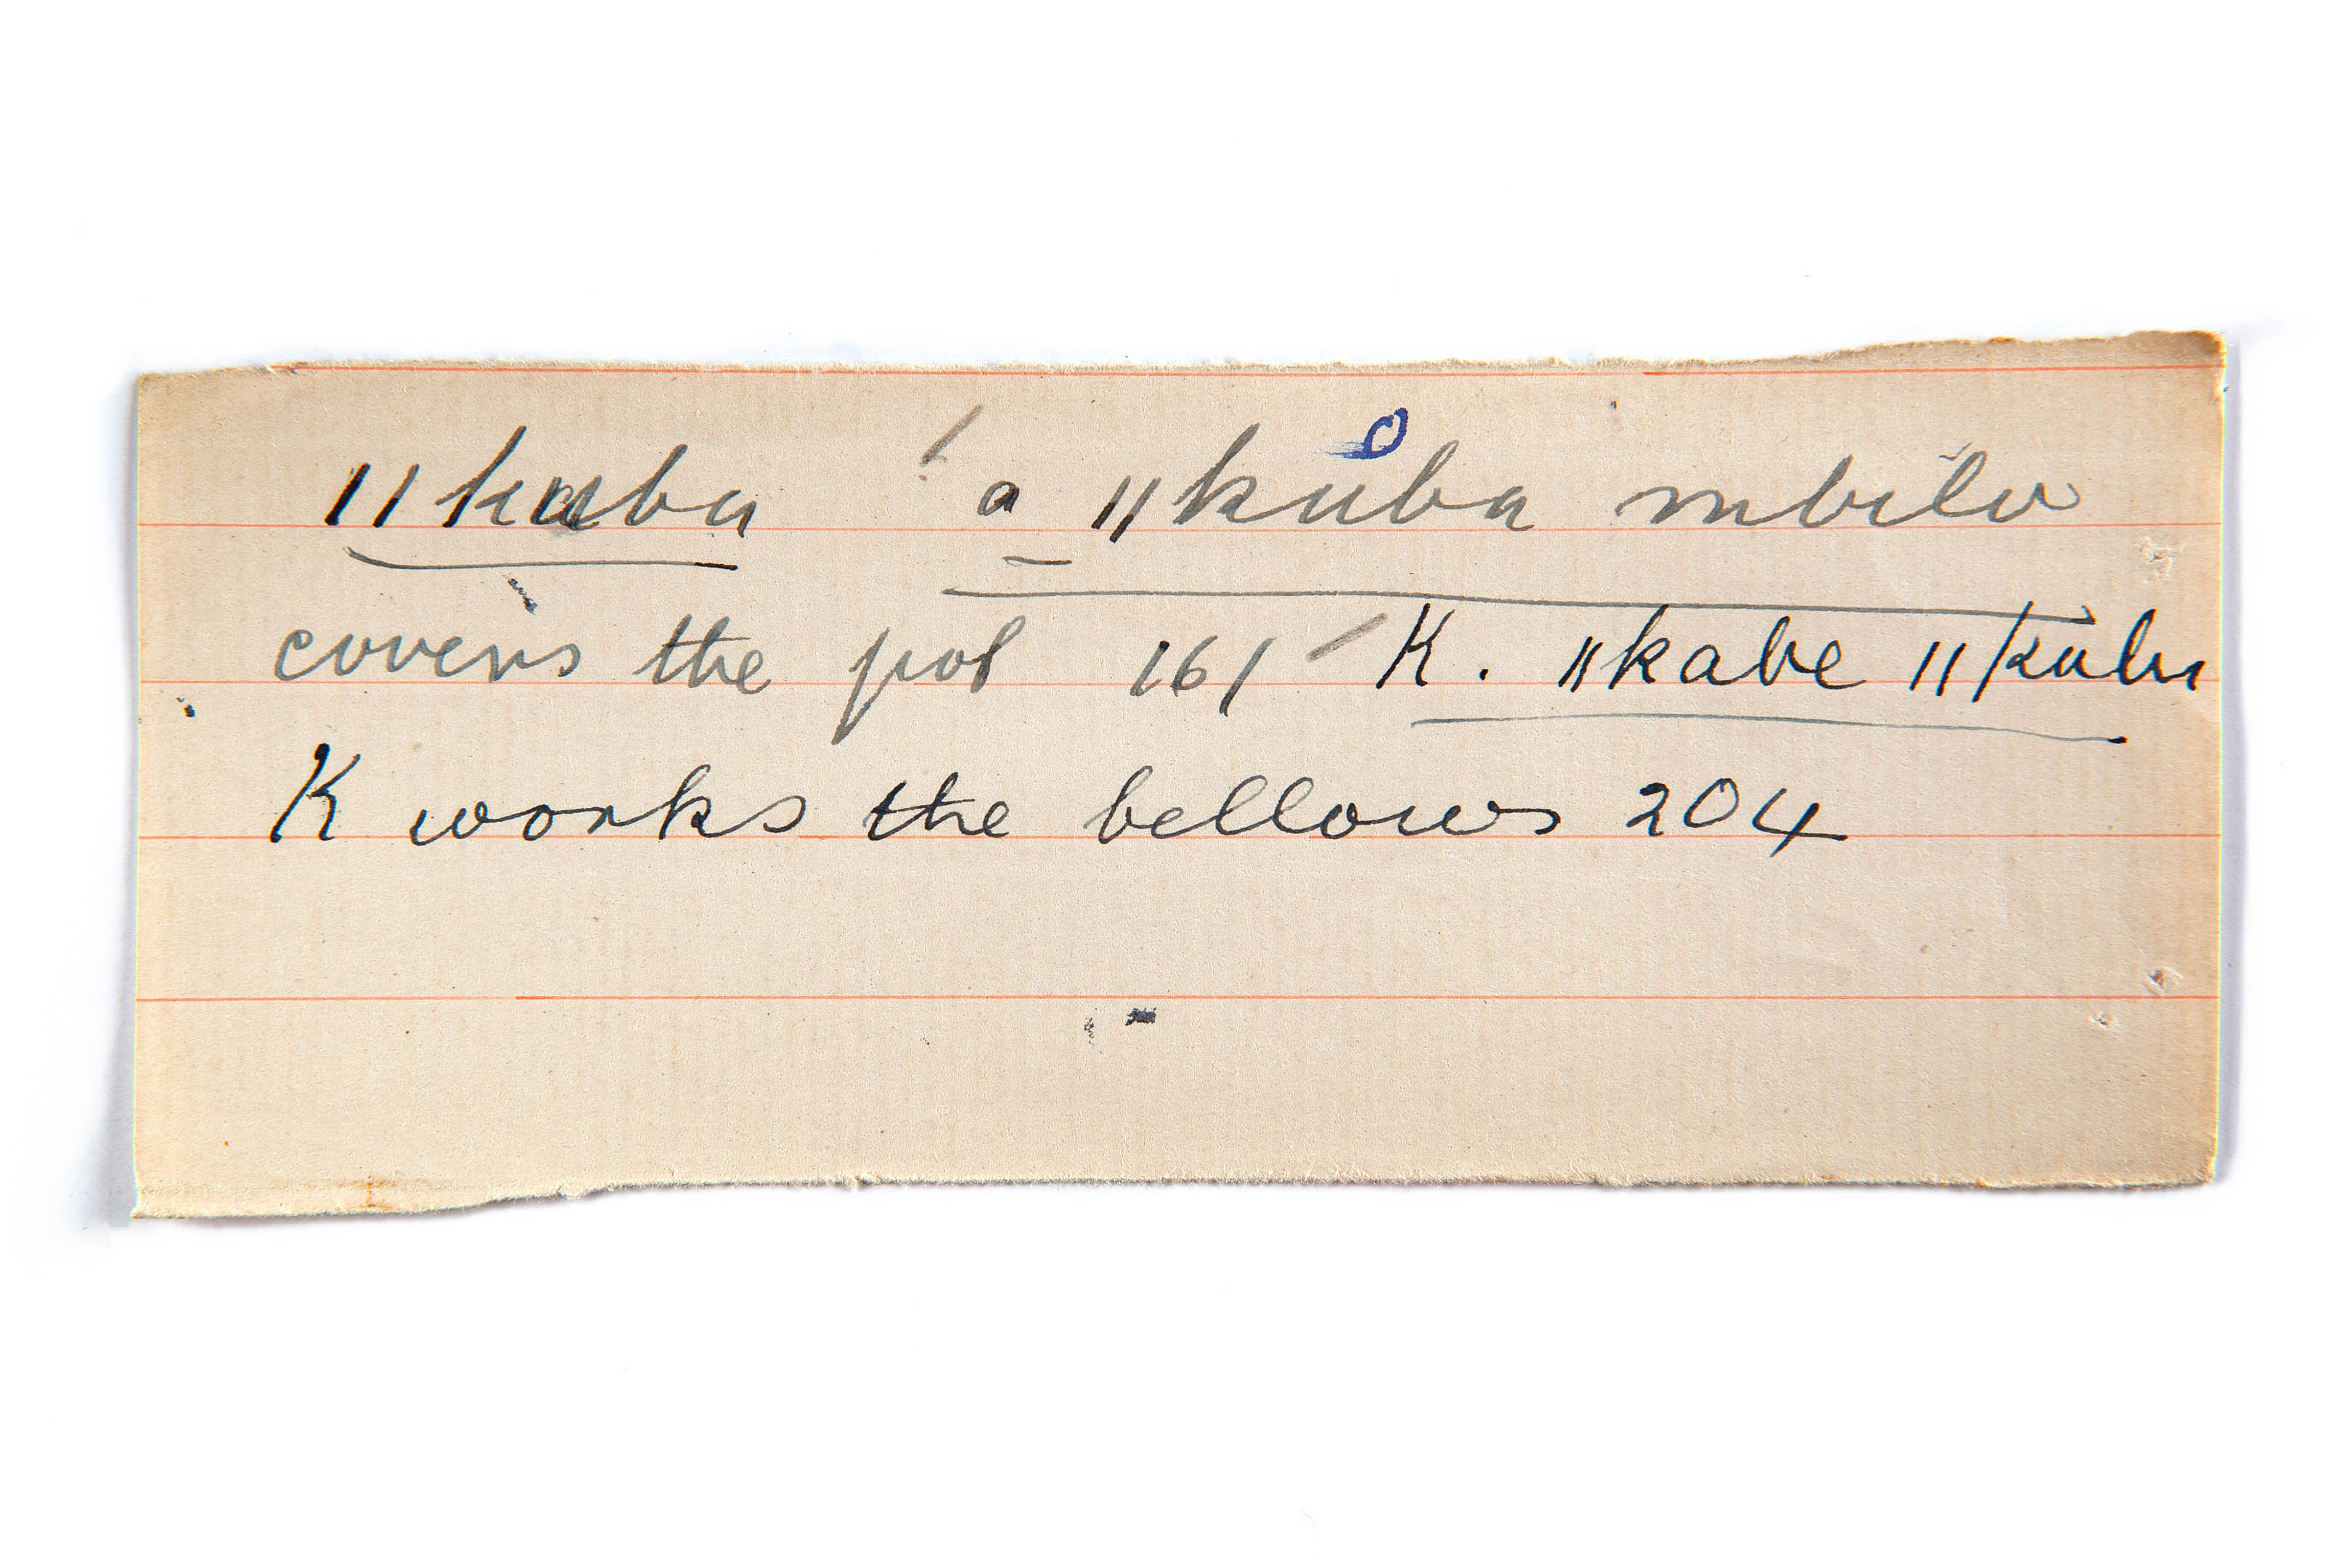 ǁkuba a ǁkuba mbilo
covers the pot 161 K. ǁkabe ǁkuba
K works the bellows 204